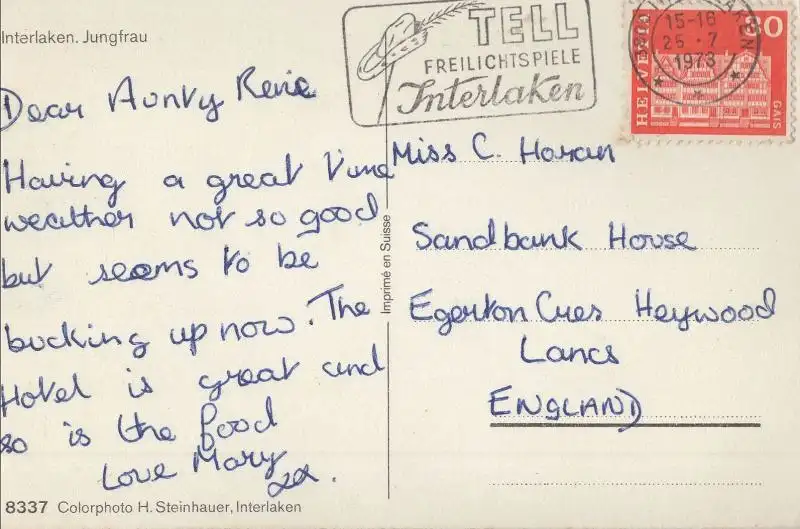 Interlaken. Jungfrau
TELL
FREILICHTSPIELE
Interlaken
INTERLAKEN
15-16
25.7
1973
HELVETIA
30
GAIS
Dear Aunty Renie
Having a great time
weather not so good
but seems to be
bucking up now. The
Hotel is great and
so is the food
Love Mary
xx.
Imprimé en Suisse
Miss C. Horan
Sandbank House
Egerton Cres Heywood
Lancs
ENGLAND
8337 Colorphoto H. Steinhauer, Interlaken